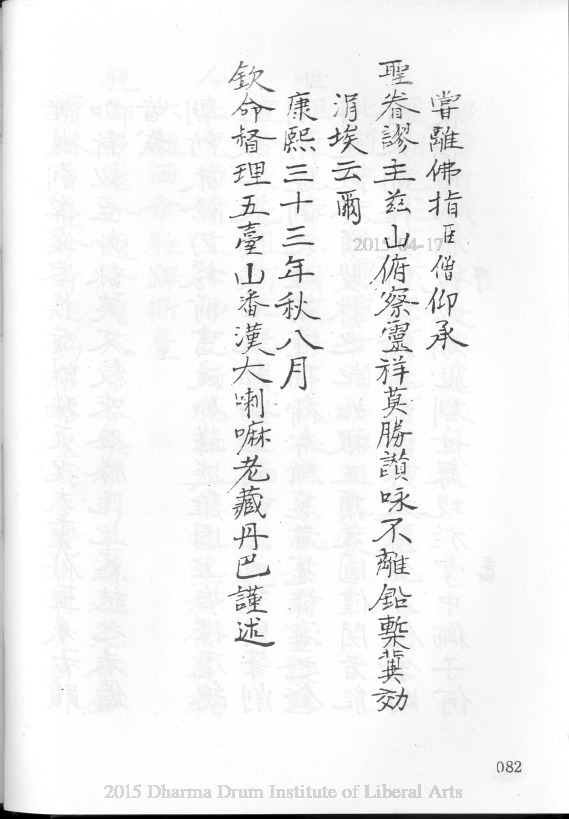 嘗離佛指臣僧仰承
聖眷謬主茲山俯察靈祥莫勝讚咏不離鉛槧冀効
涓埃云爾
康熙三十三年秋八月
欽命督理五臺山番漢大喇嘛老藏丹巴謹述
2015-04-17
082
2015 Dharma Drum Institute of Liberal Arts